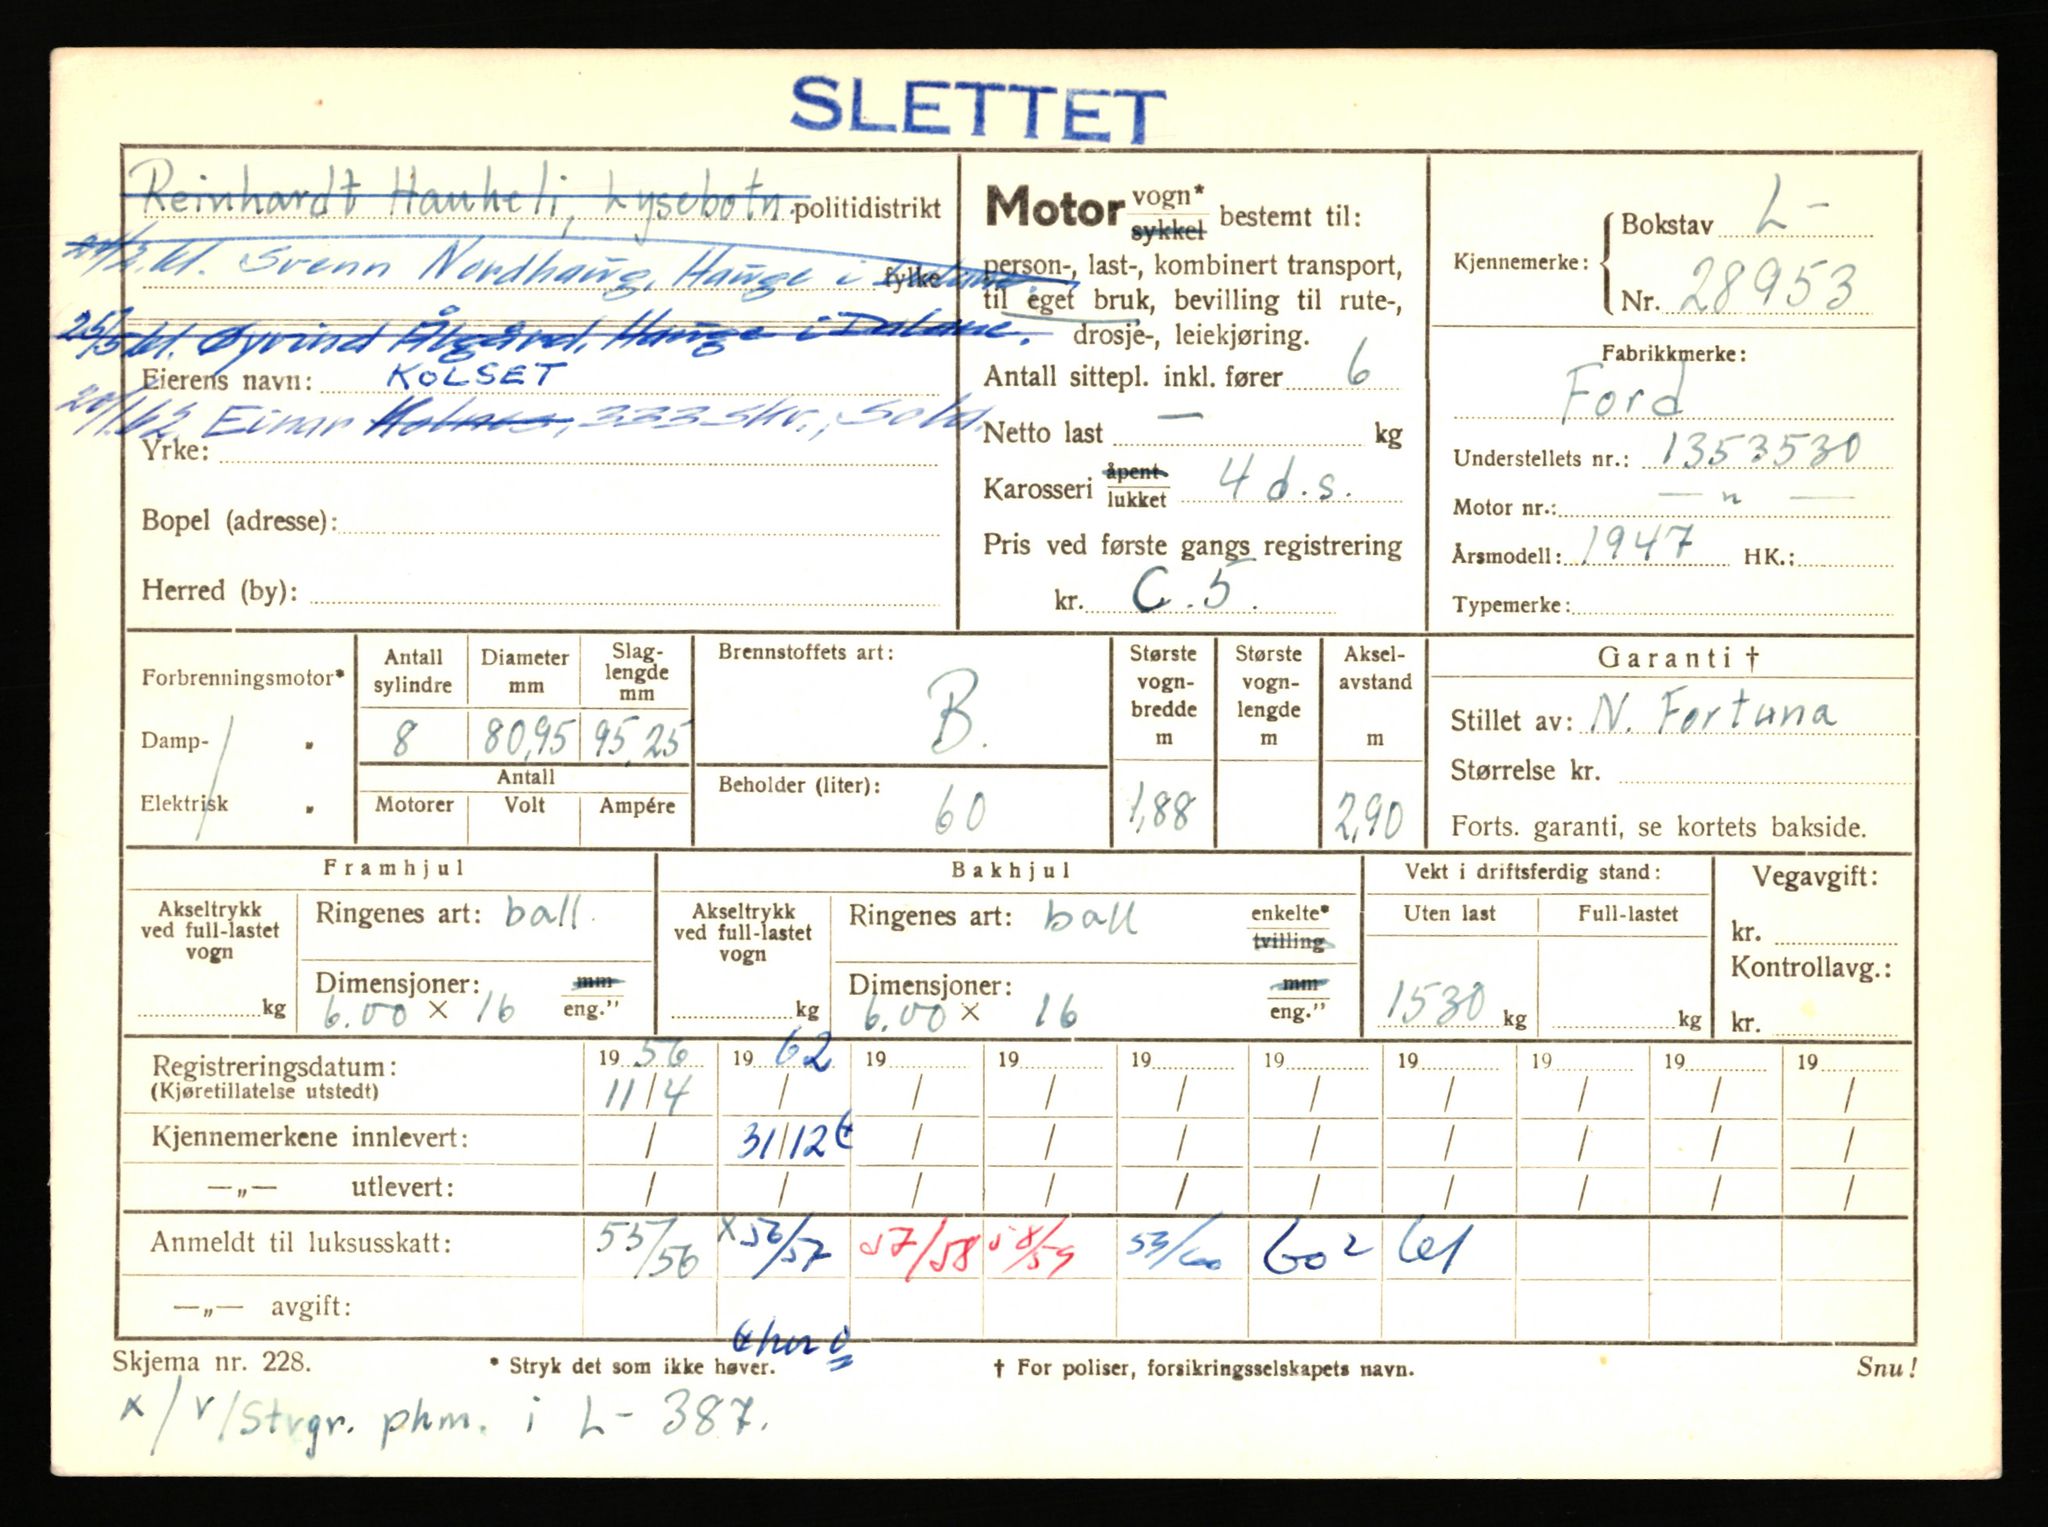 SLETTET
Reinhardt Haukeli, Lysebotn. politidistrikt
kl. Svenn Nordhaug, Hauge i Dalane. fylke
25/5 kl. Øyvind Ålgård, Hauge i Dalane.
Eierens navn: KOLSET
20/1.62 Einar Holmes, 333 skv., Sola.
Yrke:
Bopel (adresse):
Herred (by):
Motor vogn* sykkel bestemt til:
person-, last-, kombinert transport,
til eget bruk, bevilling til rute-,
drosje-, leiekjøring.
Antall sittepl. inkl. fører 6
Netto last — kg
Karosseri åpent lukket 4 d.s.
Pris ved første gangs registrering
kr. C.5.
Kjennemerke: Bokstav L-
Nr. 28953
Fabrikkmerke:
Ford
Understellets nr.: 1353530
Motor nr.: — " —
Årsmodell: 1947 HK.:
Typemerke:
Forbrenningsmotor*
Damp- "
Elektrisk "
Antall sylindre 8
Diameter mm 80,95
Slag-lengde mm 95,25
Antall
Motorer Volt Ampére
Brennstoffets art:
B.
Beholder (liter):
60
Største vogn-bredde m 1,88
Største vogn-lengde m
Aksel-avstand m 2,90
Garanti †
Stillet av: N. Fortuna
Størrelse kr.
Forts. garanti, se kortets bakside.
Framhjul
Akseltrykk ved full-lastet vogn kg
Ringenes art: ball.
Dimensjoner: mm eng."
6.00 × 16
Bakhjul
Akseltrykk ved full-lastet vogn kg
Ringenes art: ball enkelte* tvilling
Dimensjoner: mm eng."
6.00 × 16
Vekt i driftsferdig stand:
Uten last Full-lastet
1530 kg kg
Vegavgift:
kr.
Kontrollavg.:
kr.
Registreringsdatum: 19 56 19 62 19 19 19 19 19 19 19 19
(Kjøretillatelse utstedt) 11/4 / / / / / / / / /
Kjennemerkene innlevert: / 31/12 / / / / / / / /
—„— utlevert: / / / / / / / / / /
Anmeldt til luksusskatt: 55/56 x56/57 57/58 58/59 59/60 60² 61
—„— avgift:
Skjema nr. 228. * Stryk det som ikke høver. † For poliser, forsikringsselskapets navn. Snu!
x/ v/Strgr. phm. i L- 387.